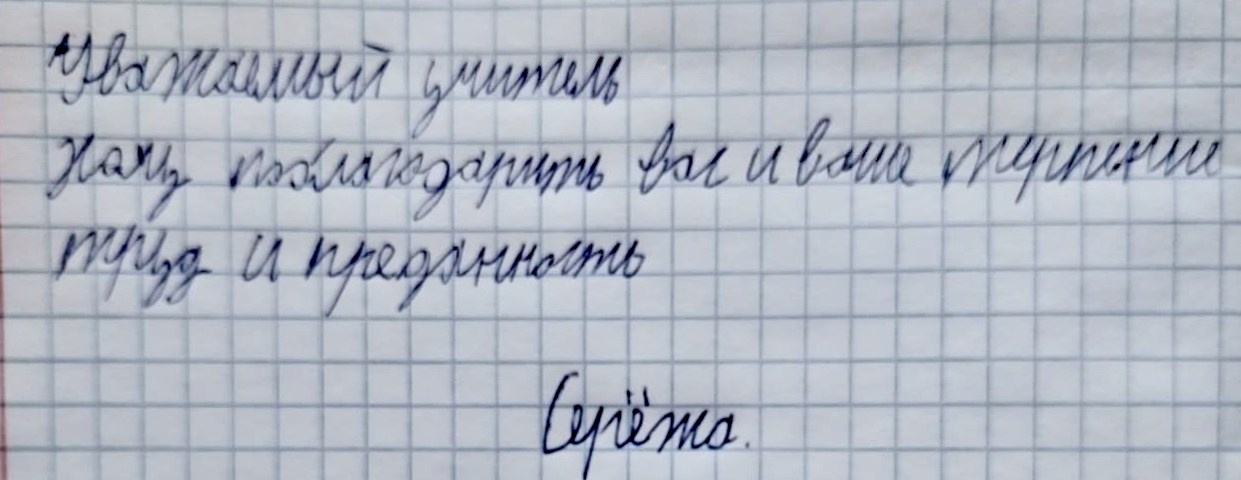 Уважаемый учитель
Хочу поблагодарить вас и ваше терпение
труд и преданность
Серёжа.